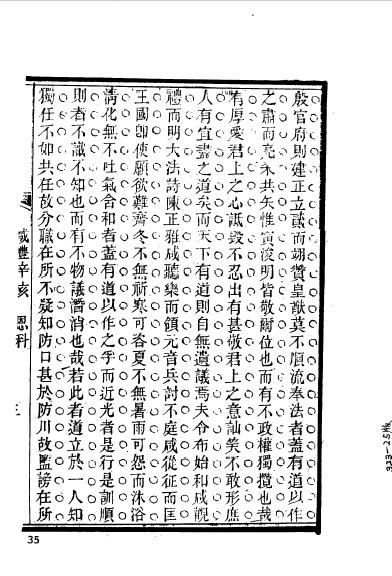 殷官府則建正立貳而翊贊皇猷莫不順流奉法者蓋有道以作
之肅而亮永共矣惟寅浚明皆敬爾位也而有不政權獨攬也哉
有厚愛君上之心詆毀不忍出有甚敬君上之意訕笑不敢形庶
人有宜盡之道矣而天下有道則自無遺議焉夫令布始和咸觀
禮而明大法詩陳正雅咸聽樂而領元音兵討不庭咸從征而匡
王國卽使願欲難齊冬不無祈寒可咨夏不無暑雨可怨而沐浴
清化無不吐氣含和者蓋有道以作之孚而近光者是行是訓順
則者不識不知也而有不物議潛消也哉若此者道立於一人知
獨任不如共任故分職在所不疑知防口甚於防川故監謗在所
咸豐辛亥 恩科 三
35
323-258